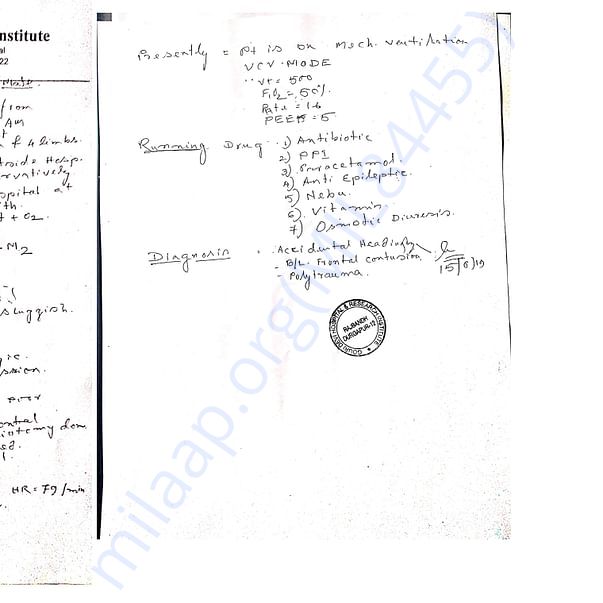 nstitute
22
from
AM
f 4 limbs.
tside Hosp.
ervatively
ospital at
th.
t + O2
M2
sluggish.
ession.
HR = 79/min
Presently = Pt is on Mech. ventilation
VCV. MODE
Vt = 500
FiO2 = 50%
Rate = 16
PEEP = 5
Running Drug 1) Antibiotic
2) PPI
3) Paracetamol.
4) Anti Epileptic.
5) Nebu.
6) Vitamin.
7) Osmotic Diuresis.
Diagnosis - Accidental Head injury
- B/L. Frontal contusion
- Polytrauma.
15/6/19
GOURI DEVI HOSPITAL & RESEARCH INSTITUTE
RAJBANDH
DURGAPUR-12
milaap.org(MIL
84455)